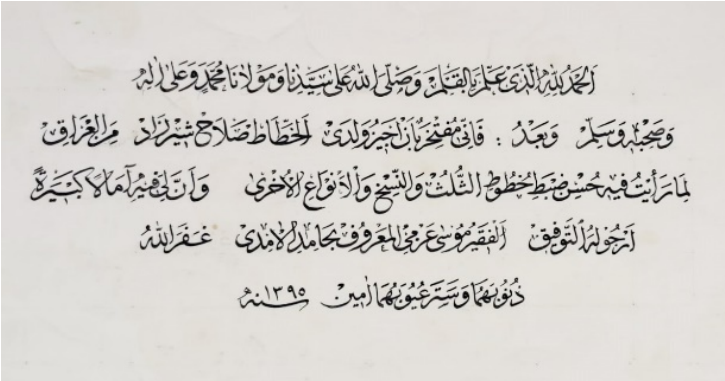 اَلحَمدُ لِلّٰهِ الَّذى عَلَّمَ بِالقَلَمِ وَصَلَّى اللهُ عَلى سَيِّدِنا وَمَولانا مُحَمَّدٍ وَعَلى اٰلِهِ
وَصَحبِهِ وَسَلَّمَ وَبَعدُ : فَاِنّى مُفتَخِرٌ بِاَن اُجيزَ وَلَدى الخَطّاط صَلاح شيرزاد مِنَ العِراق
لِما رَأَيتُ فيهِ حُسنَ ضَبطِ خُطُوطِ الثُّلُث وَالنَّسخ وَالاَنواعِ الاُخرى وَاَنَّ لى فيهِ آمالاً كَبيرَةً
اَرجُو لَهُ التَّوفيق اَلفَقير مُوسى عَزمى المَعروف بِحامِد الاٰمِدى غَفَرَ اللهُ
ذُنُوبَهُما وَسَتَرَ عُيُوبَهُما اٰمين سنه ١٣٩٥